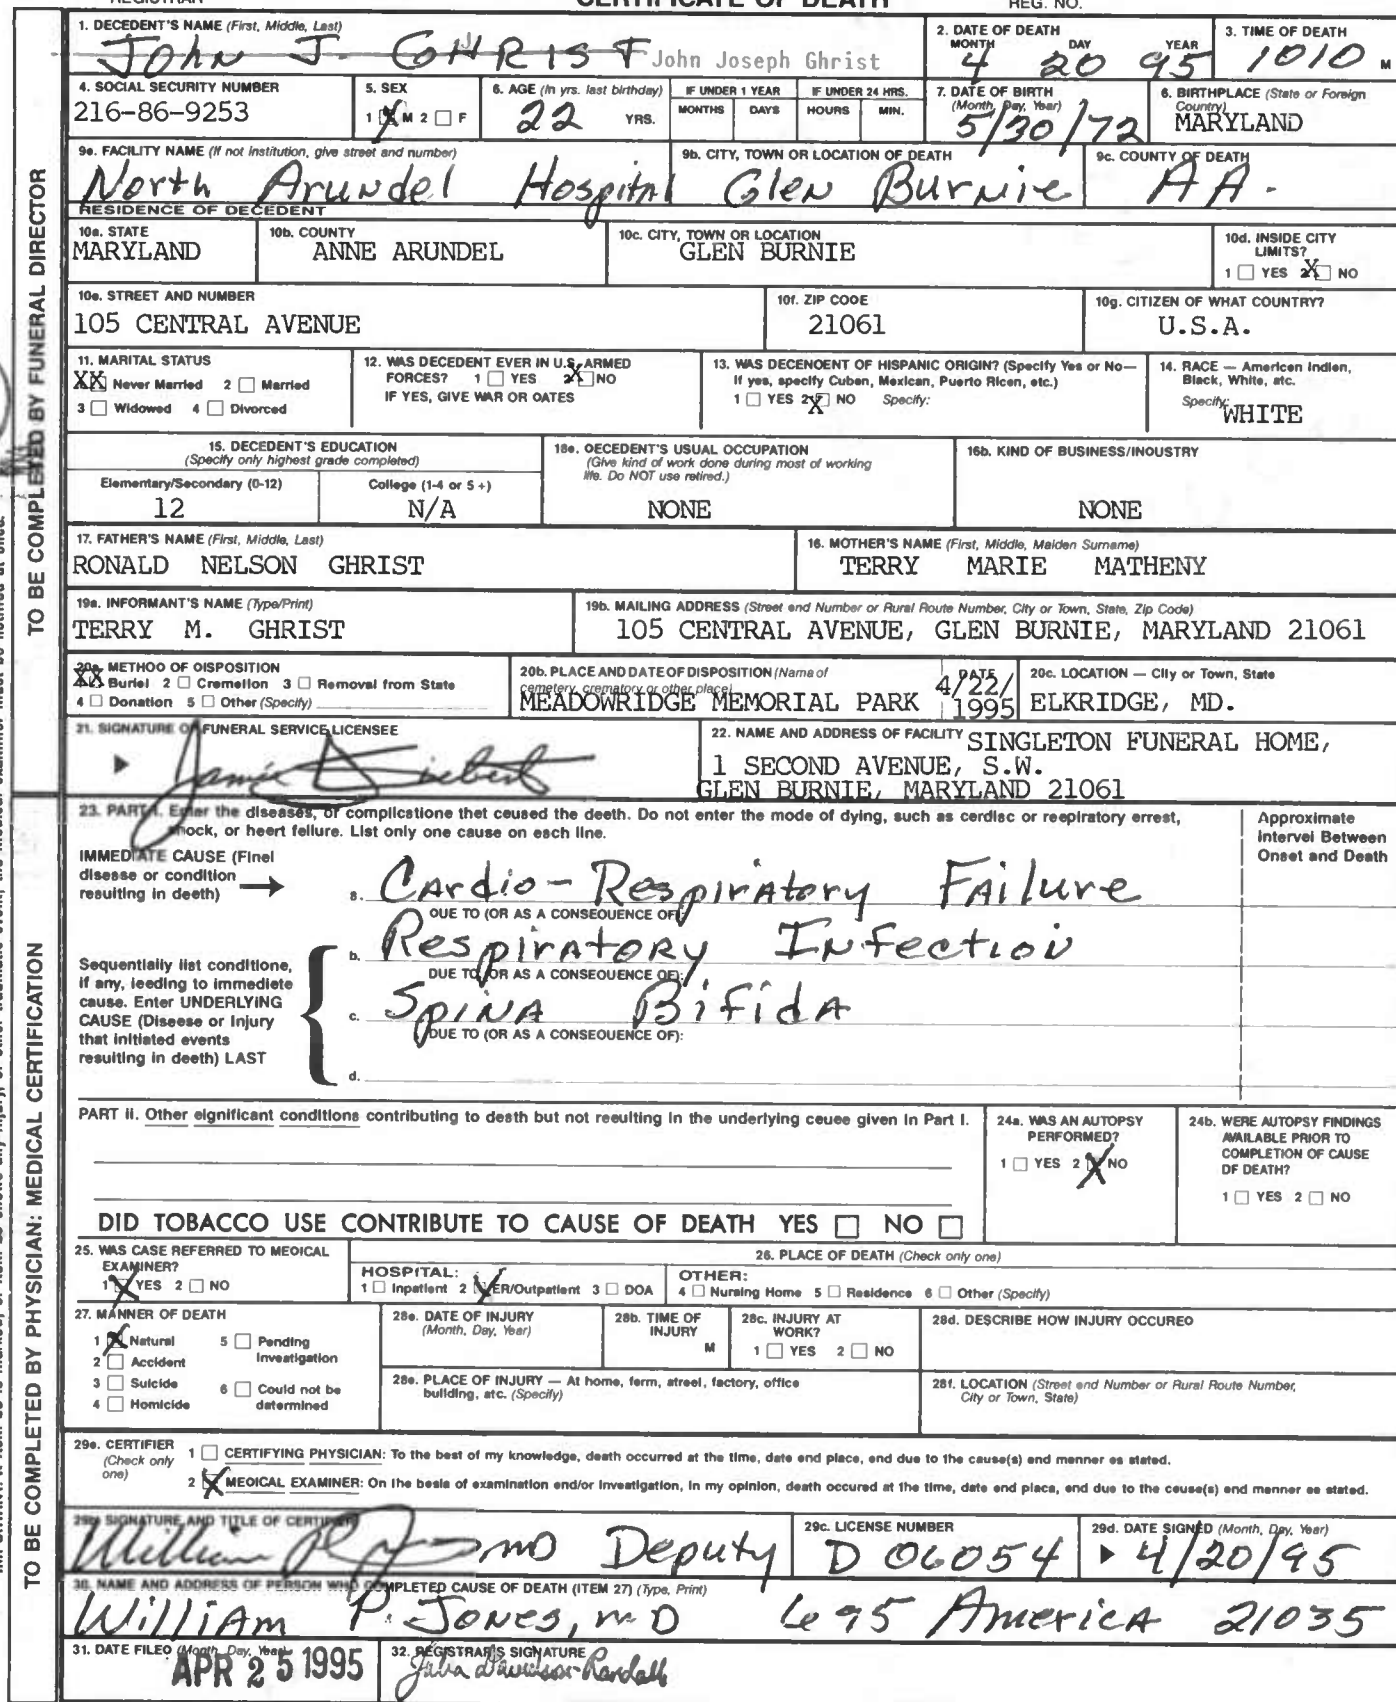 CERTIFICATE OF DEATH
REG. NO.
1. DECEDENT'S NAME (First, Middle, Last)
John J. GHRIST John Joseph Ghrist
2. DATE OF DEATH
MONTH DAY YEAR
4 20 95
3. TIME OF DEATH
1010 M
4. SOCIAL SECURITY NUMBER
216-86-9253
5. SEX
1 X M 2 □ F
6. AGE (In yrs. last birthday)
22 YRS.
IF UNDER 1 YEAR
MONTHS DAYS
IF UNDER 24 HRS.
HOURS MIN.
7. DATE OF BIRTH
(Month, Day, Year)
5/30/72
6. BIRTHPLACE (State or Foreign
Country)
MARYLAND
9e. FACILITY NAME (If not institution, give street and number)
North Arundel Hospital
9b. CITY, TOWN OR LOCATION OF DEATH
Glen Burnie
9c. COUNTY OF DEATH
AA.
RESIDENCE OF DECEDENT
10a. STATE
MARYLAND
10b. COUNTY
ANNE ARUNDEL
10c. CITY, TOWN OR LOCATION
GLEN BURNIE
10d. INSIDE CITY
LIMITS?
1 □ YES 2 X NO
10e. STREET AND NUMBER
105 CENTRAL AVENUE
10f. ZIP COOE
21061
10g. CITIZEN OF WHAT COUNTRY?
U.S.A.
11. MARITAL STATUS
XX Never Married 2 □ Married
3 □ Widowed 4 □ Divorced
12. WAS DECEDENT EVER IN U.S. ARMED
FORCES? 1 □ YES 2 X NO
IF YES, GIVE WAR OR OATES
13. WAS DECENOENT OF HISPANIC ORIGIN? (Specify Yes or No—
If yes, specify Cuben, Mexican, Puerto Ricen, etc.)
1 □ YES 2 X NO Specify:
14. RACE — Americen Indien,
Bleck, White, atc.
Specify:
WHITE
15. DECEDENT'S EDUCATION
(Specify only highest grade completed)
Elementary/Secondary (0-12)
12
College (1-4 or 5 +)
N/A
18e. OECEDENT'S USUAL OCCUPATION
(Give kind of work done during most of working
life. Do NOT use retired.)
NONE
16b. KIND OF BUSINESS/INOUSTRY
NONE
17. FATHER'S NAME (First, Middle, Last)
RONALD NELSON GHRIST
16. MOTHER'S NAME (First, Middle, Maiden Surname)
TERRY MARIE MATHENY
19a. INFORMANT'S NAME (Type/Print)
TERRY M. GHRIST
19b. MAILING ADDRESS (Street end Number or Rural Route Number, City or Town, State, Zip Code)
105 CENTRAL AVENUE, GLEN BURNIE, MARYLAND 21061
20a. METHOO OF OISPOSITION
XX Buriel 2 □ Cremelion 3 □ Removal from State
4 □ Donation 5 □ Other (Specify)
20b. PLACE AND DATE OF DISPOSITION (Name of
cemetery, crematory or other place)
MEADOWRIDGE MEMORIAL PARK
DATE
4/22/
1995
20c. LOCATION — City or Town, State
ELKRIDGE, MD.
21. SIGNATURE OF FUNERAL SERVICE LICENSEE
22. NAME AND ADDRESS OF FACILITY SINGLETON FUNERAL HOME,
1 SECOND AVENUE, S.W.
GLEN BURNIE, MARYLAND 21061
23. PART I. Enter the diseases, or complications thet ceused the deeth. Do not enter the mode of dying, such as cerdisc or reepiratory errest,
shock, or heert fellure. List only one cause on each line.
Approximate
Intervel Between
Onset and Death
IMMEDIATE CAUSE (Finel
disease or condition
resulting in deeth) →
a. Cardio-Respiratory Failure
OUE TO (OR AS A CONSEOUENCE OF):
b. Respiratory Infection
DUE TO (OR AS A CONSEOUENCE OF):
c. Spina Bifida
DUE TO (OR AS A CONSEQUENCE OF):
d.
Sequentially list conditione,
if any, leeding to immediete
cause. Enter UNDERLYING
CAUSE (Diseese or Injury
that initiated events
resulting in deeth) LAST
PART II. Other eignificant conditions contributing to death but not reeulting in the underlying ceuee given in Part I.
24a. WAS AN AUTOPSY
PERFORMED?
1 □ YES 2 X NO
24b. WERE AUTOPSY FINDINGS
AVAILABLE PRIOR TO
COMPLETION OF CAUSE
DF DEATH?
1 □ YES 2 □ NO
DID TOBACCO USE CONTRIBUTE TO CAUSE OF DEATH YES □ NO □
25. WAS CASE REFERRED TO MEOICAL
EXAMINER?
1 X YES 2 □ NO
26. PLACE OF DEATH (Check only one)
HOSPITAL:
1 □ Inpatlent 2 X ER/Outpatlent 3 □ DOA
OTHER:
4 □ Nuraing Home 5 □ Realdence 6 □ Other (Specify)
27. MANNER OF DEATH
1 X Natural 5 □ Pending
Investigation
2 □ Accident
3 □ Suicide 6 □ Could not be
determined
4 □ Homicide
28e. DATE OF INJURY
(Month, Day, Year)
28b. TIME OF
INJURY
M
28c. INJURY AT
WORK?
1 □ YES 2 □ NO
28d. DESCRIBE HOW INJURY OCCUREO
28e. PLACE OF INJURY — At home, ferm, atreel, factory, office
building, atc. (Specify)
281. LOCATION (Street end Number or Rural Route Number,
City or Town, State)
29e. CERTIFIER
(Check only
one)
1 □ CERTIFYING PHYSICIAN: To the best of my knowledge, death occurred at the time, date end place, end due to the cause(s) end menner es stated.
2 X MEOICAL EXAMINER: On the besle of examination end/or inveatigation, in my opinion, death occured at the time, date end placa, end due to the ceuse(s) end menner ee stated.
29b. SIGNATURE AND TITLE OF CERTIFIER
William P. Jones MD Deputy
29c. LICENSE NUMBER
D 06054
29d. DATE SIGNED (Month, Day, Year)
▶ 4/20/95
30. NAME AND ADDRESS OF PERSON WHO COMPLETED CAUSE OF DEATH (ITEM 27) (Type, Print)
William P. Jones, MD 695 America 21035
31. DATE FILEO (Month, Day, Year)
APR 25 1995
32. REGISTRAR'S SIGNATURE
Julia Davidson-Randall
TO BE COMPLETED BY FUNERAL DIRECTOR
TO BE COMPLETED BY PHYSICIAN: MEDICAL CERTIFICATION